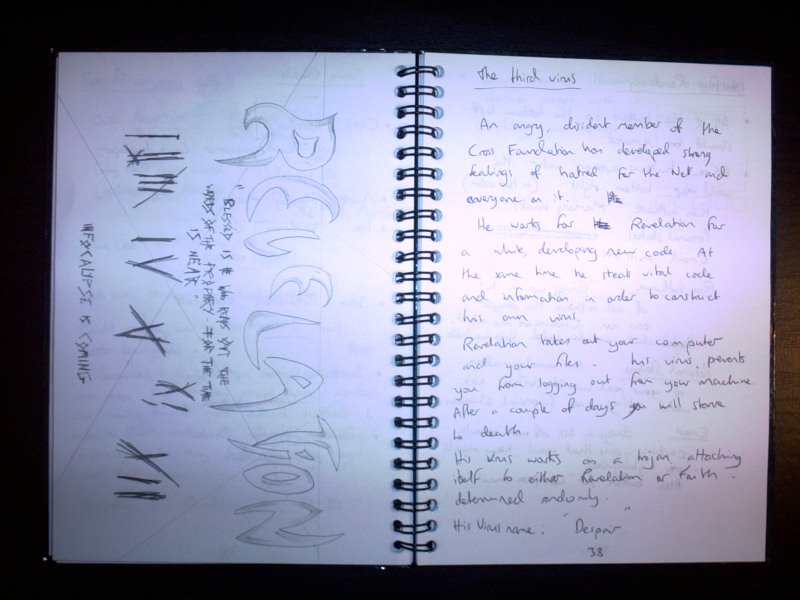 REVELATION
"BLESSED IS HE WHO READS OUT THE
WORDS OF THE PROPHECY: FOR THE TIME
IS NEAR"
INFOCALYPSE IS COMING
The third virus
An angry, disident member of the
Cross Foundation has developed strong
feelings of hatred for the Net and
everyone on it.
He works for Revelation for
a while, developing new code. At
the same time he steals vital code
and information in order to construct
his own virus.
Revelation takes out your computer
and your files. his virus prevents
you from logging out from your machine.
After a couple of days you will starve
to death
His virus works as a trojan, attaching
itself to either Revelation or Faith.
determined randomly.
His Virus name: "Despair"
38